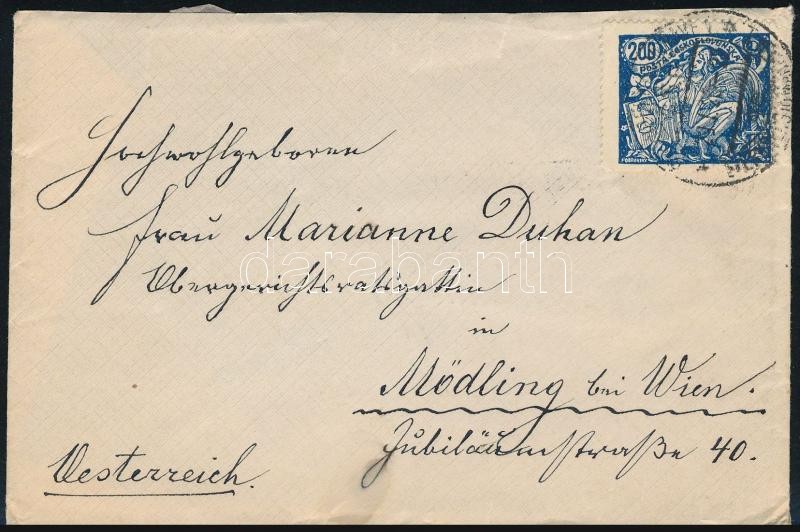 200
POŠTA ČESKOSLOVENSKÁ
Hochwohlgeboren
Frau Marianne Duhan
Obergerichtsratsgattin
in
Mödling bei Wien.
Jubiläumstraße 40.
Oesterreich.
darabanth